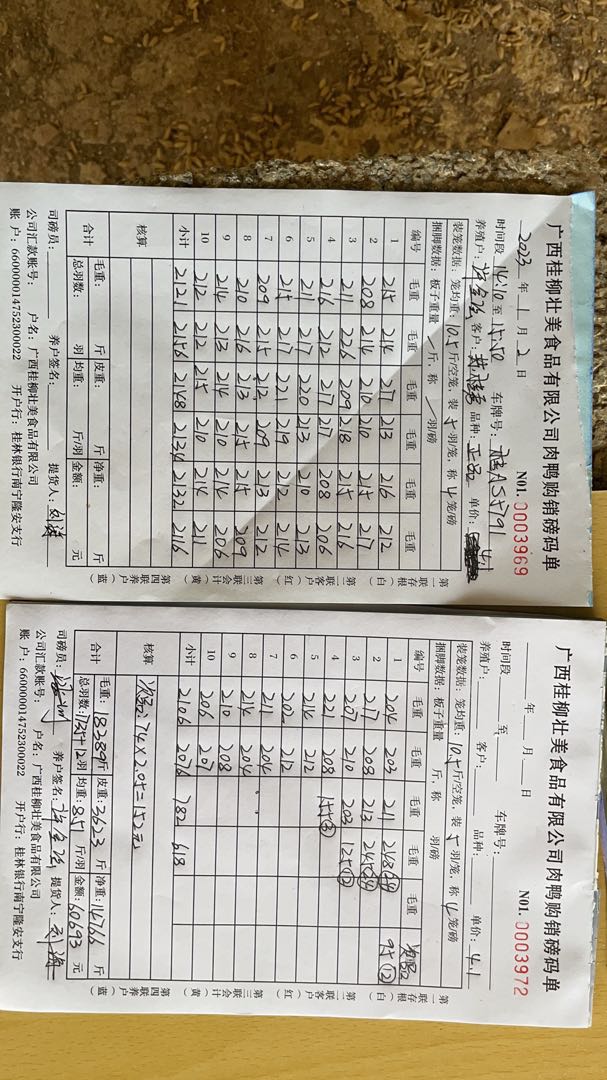 广西桂柳壮美食品有限公司肉鸭购销磅码单
NO1. 0003969
2023 年 1 月 2 日
时间段 14:10 至 15:50 车牌号: 桂A55791
养殖户: 客户: 品种: 正品 单价: 4.1
装笼数据: 笼均重: 10.5 斤/空笼, 装 5 羽/笼, 称 4 笼/磅
捆脚数据: 板子重量 / 斤, 称 / 羽/磅
编号 毛重 毛重 毛重 毛重 毛重 毛重
1 215 214 217 213 216 212
2 208 214 210 210 215 217
3 211 226 209 218 215 216
4 216 212 217 217 208 206
5 211 217 220 213 210 213
6 215 217 221 219 212 214
7 209 215 212 209 213 212
8 210 216 213 215 215 209
9 214 213 214 210 214 206
10 212 212 215 210 214 211
小计 2121 2156 2148 2134 2132 2116
核算
合计 毛重: 斤 皮重: 斤 净重: 斤
总羽数: 羽 均重: 斤/羽 金额: 元
司磅员: 养户签名: 提货人:
公司汇款账号: 户名: 广西桂柳壮美食品有限公司
账 户: 660000014752300022 开户行: 桂林银行南宁隆安支行
第一联存根(白) 第二联客户(红) 第三联会计(黄) 第四联养户(蓝)
广西桂柳壮美食品有限公司肉鸭购销磅码单
NO1. 0003972
年 月 日
时间段 至 车牌号:
养殖户: 客户: 品种: 单价: 4.1
装笼数据: 笼均重: 10.5 斤/空笼, 装 5 羽/笼, 称 4 笼/磅
捆脚数据: 板子重量 斤, 称 羽/磅
编号 毛重 毛重 毛重 毛重 毛重 次品
1 204 203 211 248㉔ 95⑫
2 217 208 213 245㉔
3 207 210 203 125⑫
4 221 208 155③
5 214 212
6 202 212
7 211 204
8 214 204
9 210 208
10 206 207
小计 2106 2076 782 618
核算 次品: 74×2.05=152元
合计 毛重: 18389 斤 皮重: 3623 斤 净重: 14766 斤
总羽数: 1735+12 羽 均重: 8.51 斤/羽 金额: 60693 元
司磅员: 养户签名: 提货人:
公司汇款账号: 户名: 广西桂柳壮美食品有限公司
账 户: 660000014752300022 开户行: 桂林银行南宁隆安支行
第一联存根(白) 第二联客户(红) 第三联会计(黄) 第四联养户(蓝)